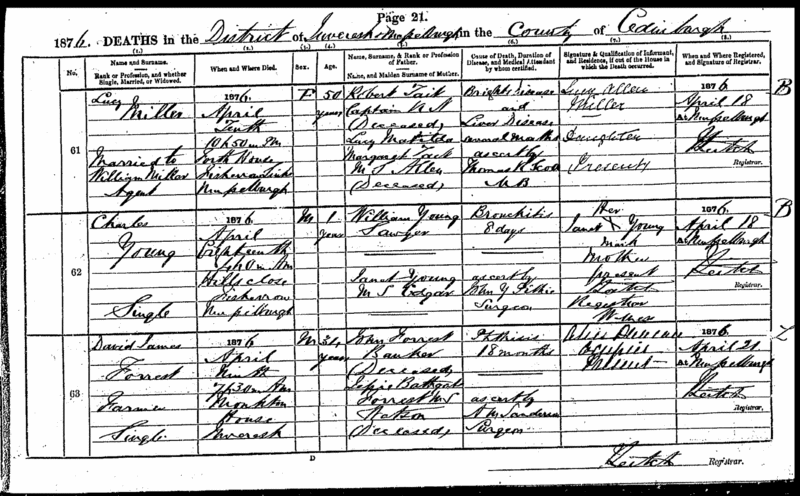 Page 21.
1876. DEATHS in the District of Inveresk & Musselburgh in the County of Edinburgh
No.
Name and Surname.
Rank or Profession, and whether Single, Married, or Widowed.
When and Where Died.
Sex.
Age.
Name, Surname, & Rank or Profession of Father.
Name, and Maiden Surname of Mother.
Cause of Death, Duration of Disease, and Medical Attendant by whom certified.
Signature & Qualification of Informant, and Residence, if out of the House in which the Death occurred.
When and Where Registered, and Signature of Registrar.
61
Lucy
Miller
Married to
William Miller
Agent
1876,
April
Tenth
10h 50m PM
Forth House
Fisherrow
Musselburgh
F
50
years
Robert Tait
Captain R N
(Deceased)
Lucy Matilda
Margaret Tait
M.S.
(Deceased)
Brights Disease
and
Liver Disease
several months
as cert by
Thomas R Scott
M B
Lucy Allen
Miller
Daughter
Present
1876,
April 18
At Musselburgh
Keitch
Registrar.
B
62
Charles
Young
Single
1876
April
Eighteenth
AM
Hills close
Fisherrow
Musselburgh
M
1
year
William Young
Sawyer
Janet Young
M S Edgar
Bronchitis
8 days
as cert by
John Y
Surgeon
Her
Janet X Young
mark
mother
present
Keitch
Registrar
Witness
1876,
April 18
At Musselburgh
Keitch
Registrar.
B
63
David James
Forrest
Farmer
Single
1876
April
Ninth
7h 30m AM
Monkton
House
Inveresk
M
34
years
John Forrest
Banker
(Deceased)
Bathgate
Forrest M S
(Deceased)
Phthisis
18 months
as cert by
A M Sanderson
Surgeon
Occupier
1876,
April 21
At Musselburgh
Keitch
Registrar.
D
Keitch Registrar.